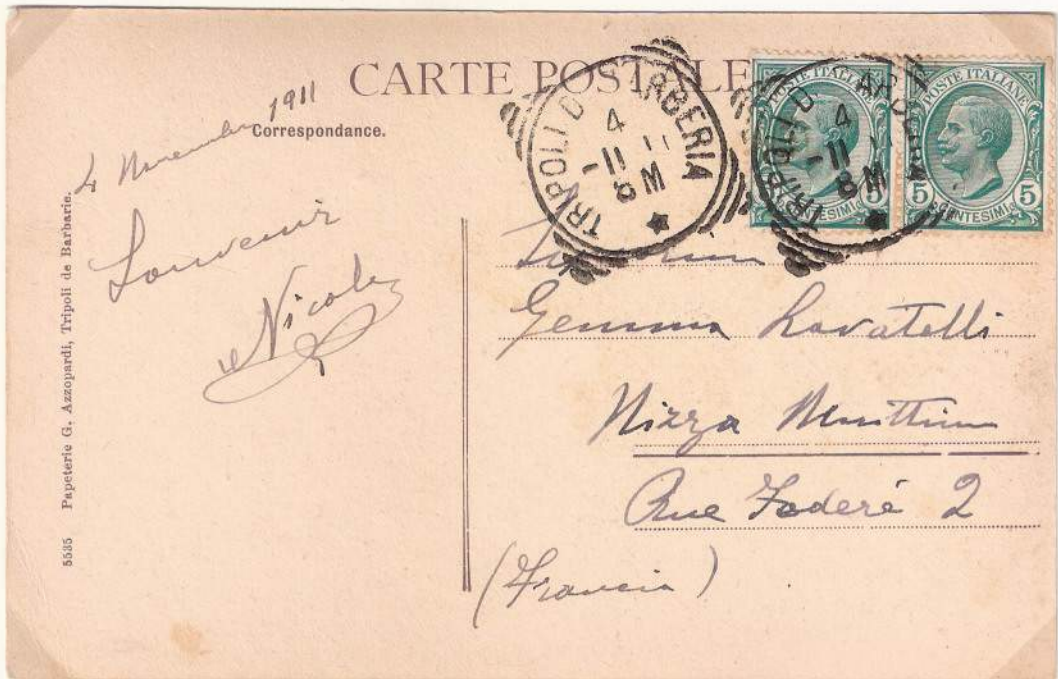 CARTE POSTALE
Correspondance.
4 Novembre 1911
Souvenir
Nicola
5535 Papeterie G. Azzopardi, Tripoli de Barbarie.
TRIPOLI D BARBERIA
4
-11 11
8M
TRIPOLI D BARBERIA
4
-11 11
8M
POSTE ITALIANE
5 CENTESIMI 5
POSTE ITALIANE
5 CENTESIMI 5
Gemma Lovatelli
Nizza Marittima
Rue Foderé 2
(Francia)